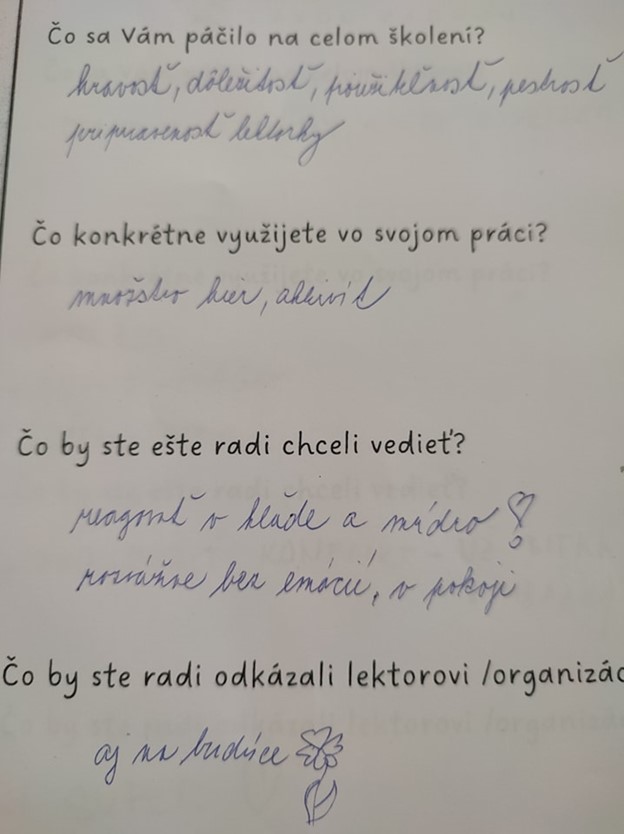 Čo sa Vám páčilo na celom školení?
hravosť, dôležitosť, použiteľnosť, pestrosť
pripravenosť lektorky
Čo konkrétne využijete vo svojom práci?
množstvo hier, aktivít
Čo by ste ešte radi chceli vedieť?
reagovať v kľude a múdro
rozvážne bez emócií, v pokoji
Čo by ste radi odkázali lektorovi /organizác
aj na budúce